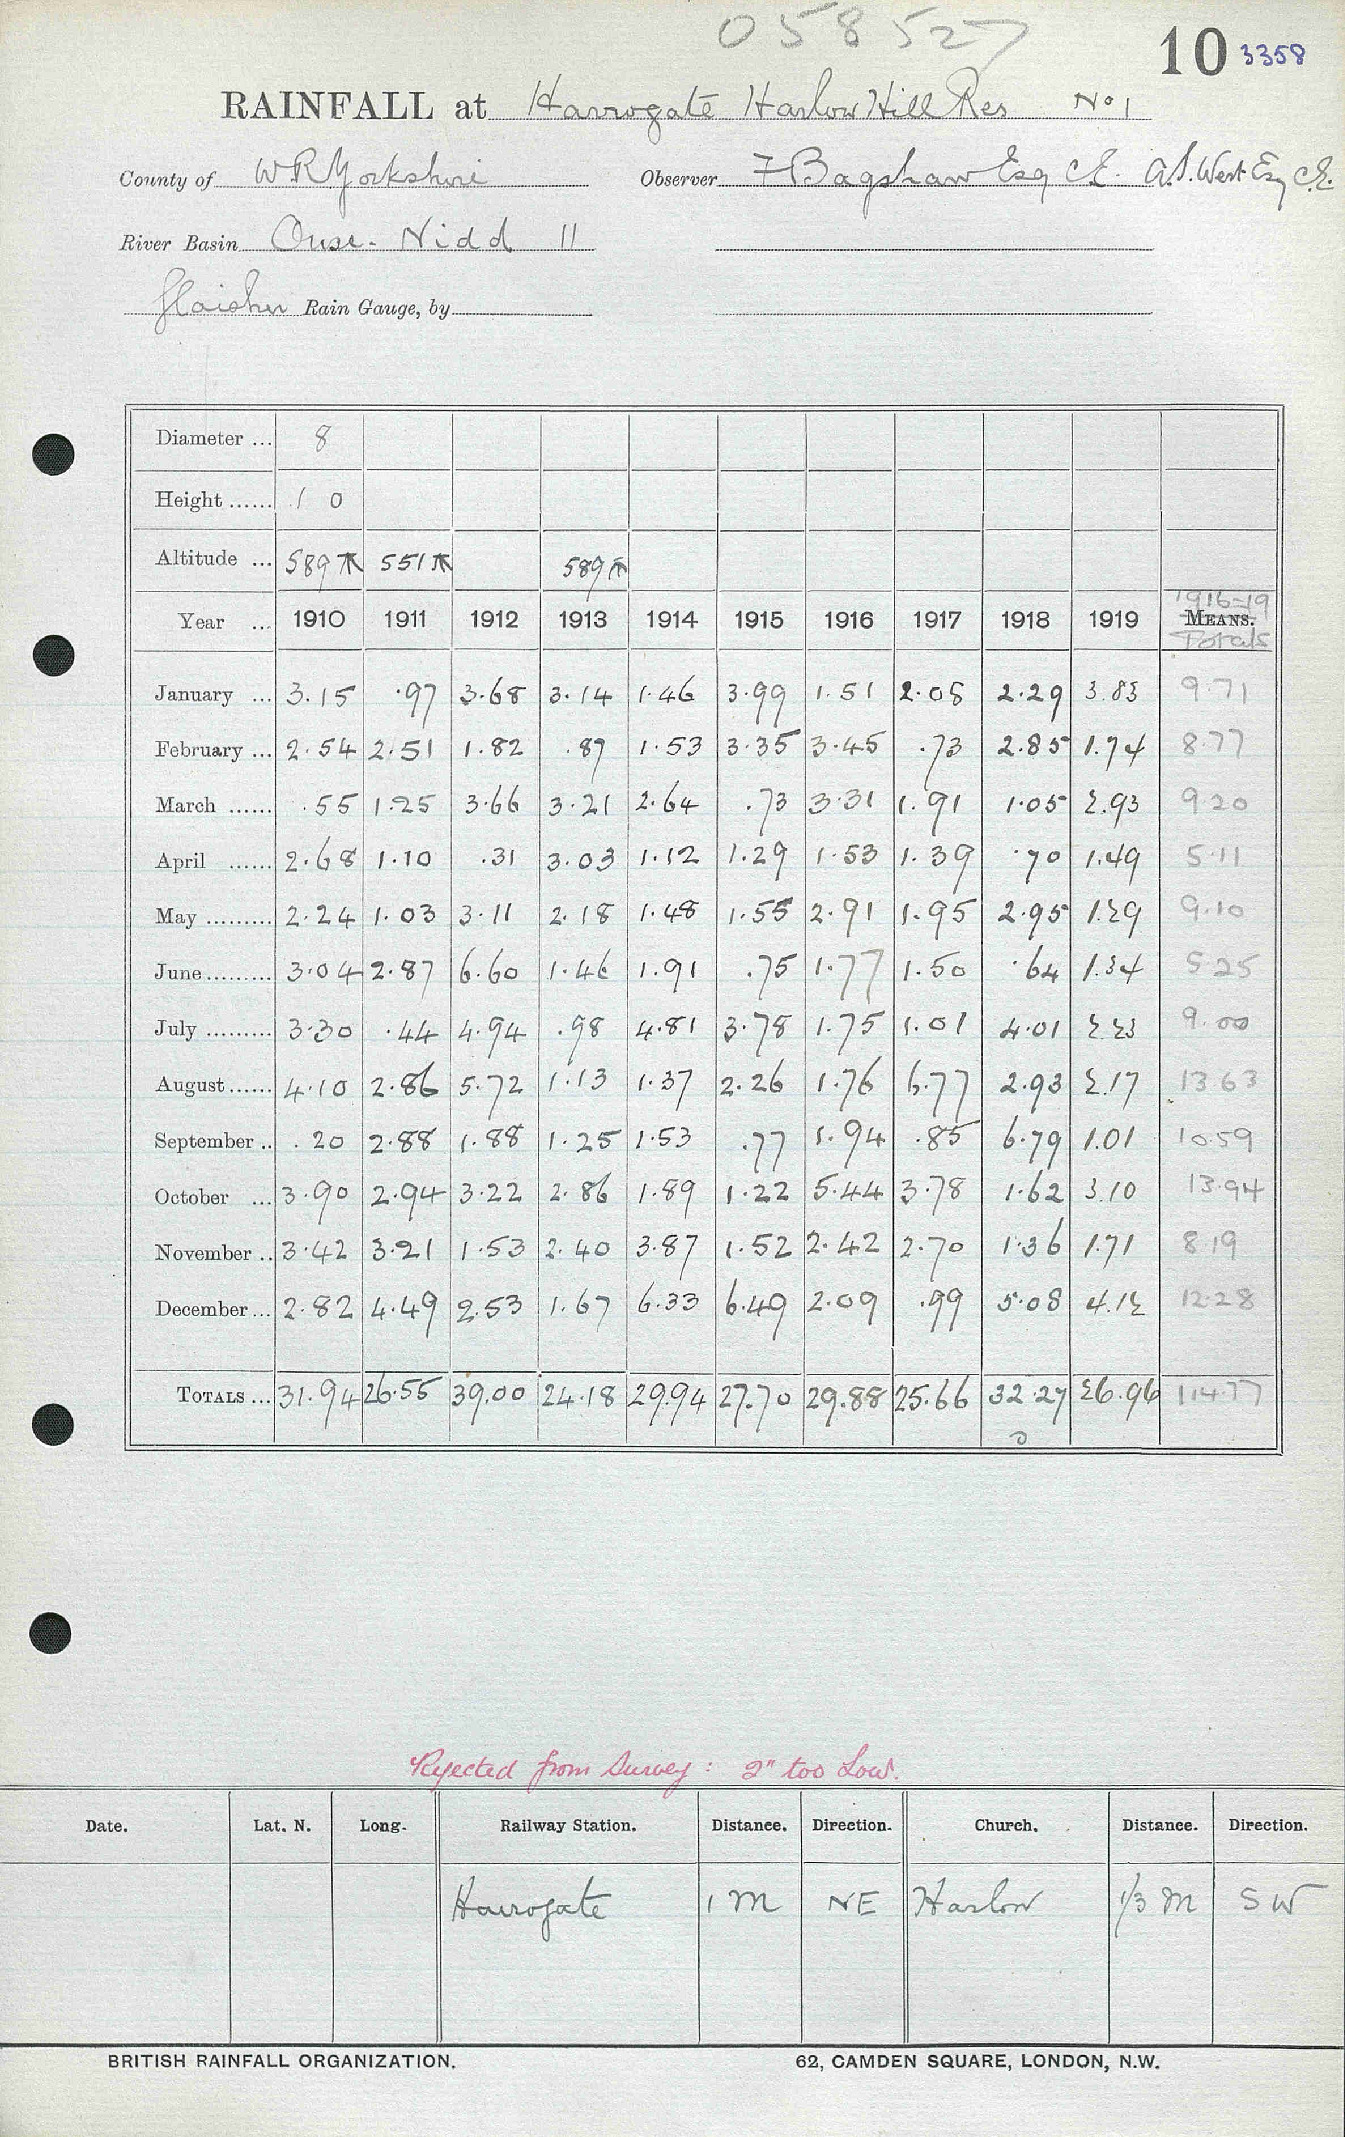 058527
10 3358
RAINFALL at Harrogate Harlow Hill Res No 1
County of W R Yorkshire Observer F Bagshaw Esq C.E. A.S. West Esq C.E.
River Basin Ouse - Nidd 11
Glaisher Rain Gauge, by
Diameter ... 8
Height ...... 1 0
Altitude ... 589 551 589
1916-19
Year ... 1910 1911 1912 1913 1914 1915 1916 1917 1918 1919 MEANS.
Totals
January ... 3.15 .97 3.68 3.14 1.46 3.99 1.51 2.08 2.29 3.83 9.71
February ... 2.54 2.51 1.82 .87 1.53 3.35 3.45 .73 2.85 1.74 8.77
March ...... .55 1.25 3.66 3.21 2.64 .73 3.31 1.91 1.05 2.93 9.20
April ...... 2.68 1.10 .31 3.03 1.12 1.29 1.53 1.39 .70 1.49 5.11
May ......... 2.24 1.03 3.11 2.18 1.48 1.55 2.91 1.95 2.95 1.29 9.10
June ......... 3.04 2.87 6.60 1.46 1.91 .75 1.77 1.50 .64 1.34 5.25
July ......... 3.30 .44 4.94 .98 4.81 3.78 1.75 1.01 4.01 2.23 9.00
August ...... 4.10 2.86 5.72 1.13 1.37 2.26 1.76 6.77 2.93 2.17 13.63
September .. .20 2.88 1.88 1.25 1.53 .77 1.94 .85 6.79 1.01 10.59
October ... 3.90 2.94 3.22 2.86 1.89 1.22 5.44 3.78 1.62 3.10 13.94
November .. 3.42 3.21 1.53 2.40 3.87 1.52 2.42 2.70 1.36 1.71 8.19
December ... 2.82 4.49 2.53 1.67 6.33 6.49 2.09 .99 5.08 4.12 12.28
TOTALS ... 31.94 26.55 39.00 24.18 29.94 27.70 29.88 25.66 32.27 26.96 114.77
Rejected from Survey: 2" too Low.
Date. Lat. N. Long. Railway Station. Distance. Direction. Church. Distance. Direction.
Harrogate 1 M NE Harlow 1/3 M SW
BRITISH RAINFALL ORGANIZATION. 62, CAMDEN SQUARE, LONDON, N.W.